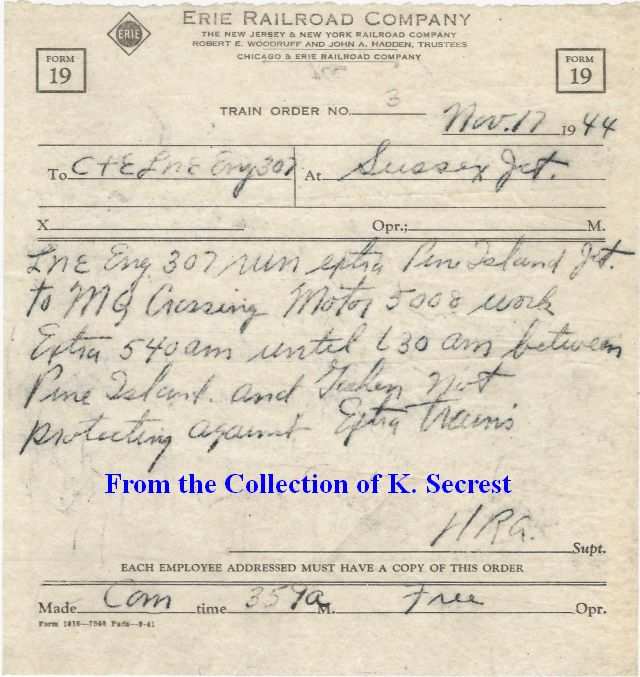 ERIE
ERIE RAILROAD COMPANY
THE NEW JERSEY & NEW YORK RAILROAD COMPANY
ROBERT E. WOODRUFF AND JOHN A. HADDEN, TRUSTEES
CHICAGO & ERIE RAILROAD COMPANY
FORM 19
FORM 19
TRAIN ORDER NO. 3
Nov. 17 1944
To C+E LnE Eng 307 At Sussex Jct.
X Opr.; M.
LnE Eng 307 run extra Pine Island Jct.
to MQ Crossing Motor 5008 work
Extra 540am until 630 am between
Pine Island and Goshen not
protecting against Extra Trains
From the Collection of K. Secrest
HRG.
Supt.
EACH EMPLOYEE ADDRESSED MUST HAVE A COPY OF THIS ORDER
Made Com time 359a M. Free Opr.
Form 1616—7566 Pads—9-41